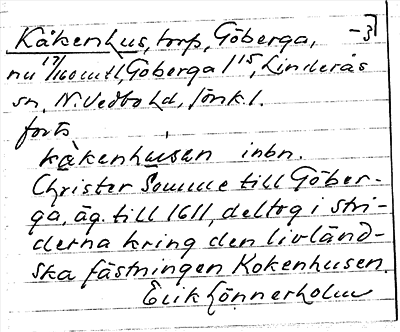 Kåkenhus, torp, Göberga, -3
nu 17/160 mtl, Göberga 1¹⁵, Linderås
sn, N. Vedbo hd, Jönk. l.
forts
kåkenhusen inbn.
Christer Somme till Göber-
ga, äg. till 1611, deltog i stri-
derna kring den livländ-
ska fästningen Kokenhusen.
Erik Lönnerholm